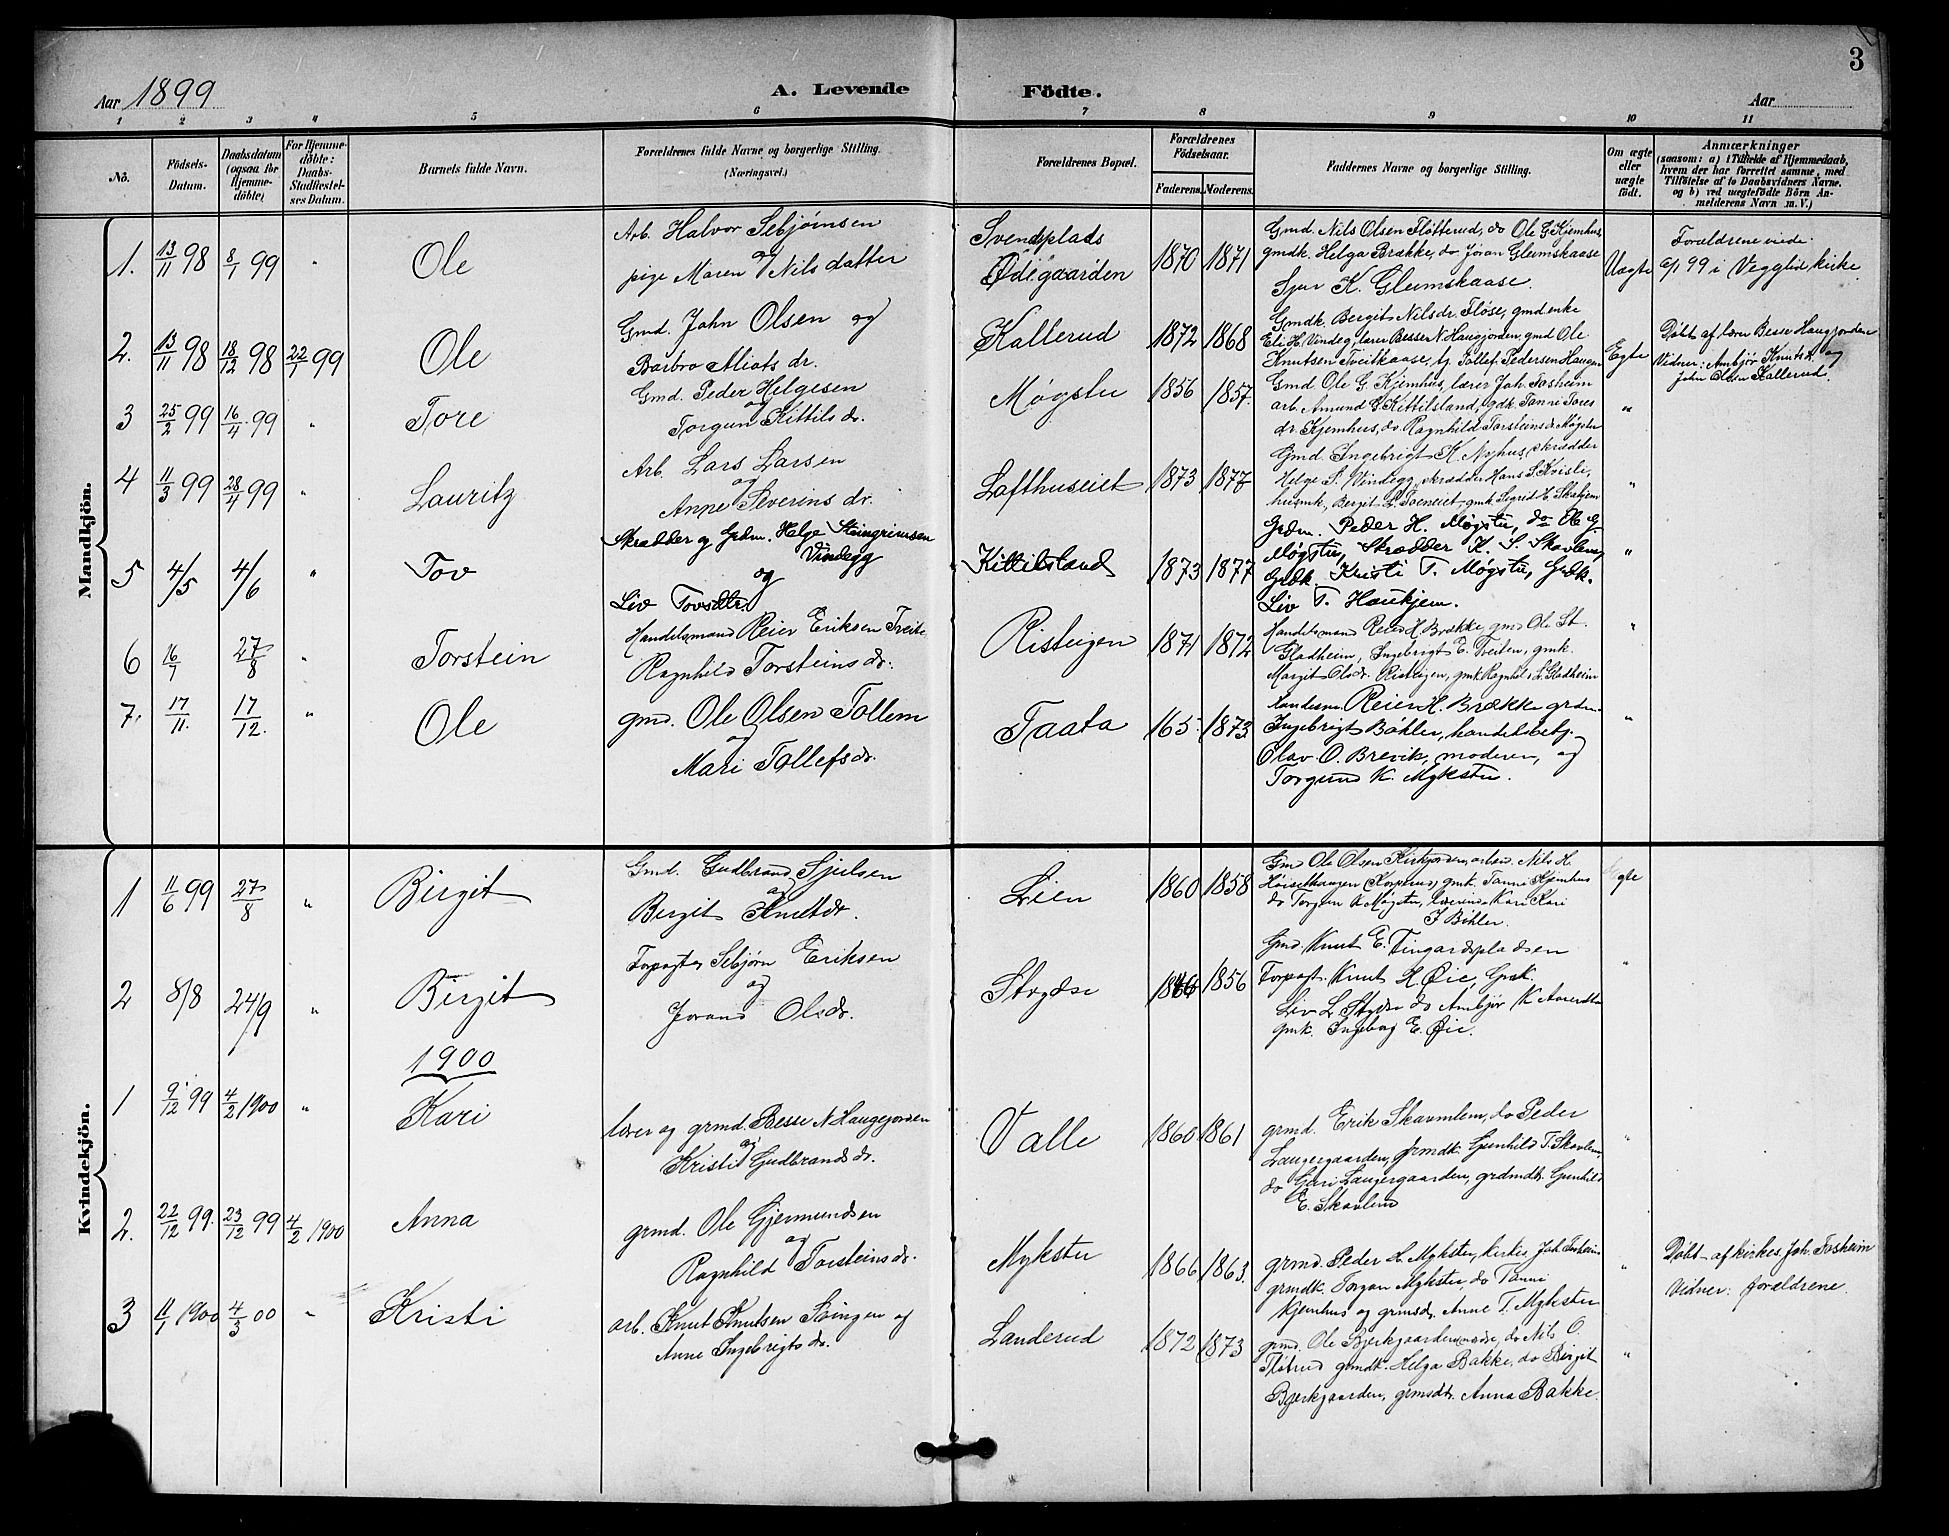 3
Aar 1899
A. Levende Födte.
Aar
1 2 3 4 5 6 7 8 9 10 11
No.
Födsels-Datum.
Daabsdatum (ogsaa for Hjemme-döbte)
For Hjemme-döbte: Daabs-Stadfæstel-ses Datum.
Barnets fulde Navn.
Forældrenes fulde Navne og borgerlige Stilling.
(Næringsvei.)
Forældrenes Bopæl.
Forældrenes Födselsaar.
Faderens. Moderens.
Faddernes Navne og borgerlige Stilling.
Om ægte eller uægte födt.
Anmærkninger
(saasom: a) i Tilfælde af Hjemmedaab,
hvem der har forrettet samme, med
Tilföielse af to Daabsvidners Navne.
og b) ved uægtefödte Börn An-
melderens Navn m. V.)
Mandkjön.
1. 13/11 98 8/1 99 " Ole
Arb. Halvor Sebjørnsen
og
pige Maren Nilsdatter
Svendsplads
Ødegaarden
1870 1871
Gmd. Nils Olsen Fløtterud, do Ole G Kjemhus,
gmdk. Helga Brække, do. Jøran Gleimskaase
Sjur K. Gleimskaase.
Uægte
Forældrene viede
99 i Vegglid kirke.
2. 13/11 98 18/12 98 22/1 99 Ole
Gmd. John Olsen og
Barbro dr.
Kallerud
1872 1868
Gmdk. Bergit Nilsdr. Fløse, gmd enke
Eli H. Vindeg, lærer Besse N Haugjorden, gmd Ole
Knutsen Treitkaase, tj. Tollef Pedersen Haugen
Ægte
Døbt af lærer Besse Haugjorden
Vidner: Ambjør Knutsd. og
John Olsen Kallerud.
3 25/2 99 16/4 99 " Tore
Gmd. Peder Helgesen
og
Torgun Kittilsdr.
Møgster
1856 1857.
Gmd Ole G. Kjemhus, lærer Joh. Fosheim
arb. Amund G. Kittilsland, gdk. Tanni Tores
dr. Kjemhus, do Ragnhild Torsteinsdr Møgster
"
4 11/3 99 28/4 99 " Lauritz
Arb. Lars Larsen
og
Anne Severinsdr.
Lofthuseiet
1873 1877
Gmd. Ingebrigt K. Nyhus, skrædder
Helge S. Vindegg, skrædder Hans S. Kvisle,
husmk. Bergit L. gmk Sigrid H.
"
5 4/5 4/6 " Tov
Skrædder og Grdm. Helge Steingrimsen
Vindegg
og
Liv Tovsdtr.
Kittilsland
1873 1877
Grdm. Peder H. Møgster, do Ole G.
Møgster, Skrædder K. S. Skavlem,
Grdk. Kristi T. Møgster, Grdk.
Liv T. Haukjem.
"
6 16/7 27/8 " Torstein
Handelsmand Reier Eriksen Treite
Ragnhild Torsteinsdr.
Risteigen
1871 1872
Handelsmand Reier H. Brække, gmd Ole St.
Gladheim, Ingebrigt E. Treiten, gmk.
Margit Olsdr. Risteigen, gmk Ragnhild S. Gladheim
"
7. 17/11. 17/12. " Ole
gmd. Ole Olsen Tollem
og
Mari Tollefsdr.
Taata
165 1873
Handelsm. Reier H. Brække grdm.
Ingebrigt Bøhler, handelsbetj.
Olav O. Brevik, moderen, og
Torgund K. Mykstu.
"
Kvindekjön.
1 11/6 99 27/8 " Birgit
Gmd. Gudbrand Sjulsen
og
Birgit Knutdr.
Lien
1860 1858
Gmd Ole Olsen Kirkjorden, arbm. Nils H.
gmk. Tanni Kjemhus
do Torgun K Møgster, lærerinde Kari Kari
I Bøhler.
gte
2 8/8 24/9 " Birgit
Forpagter Sebjørn Eriksen
og
Jorand Olsdr.
Stygdse
1856
Gmd. Knut E. Tingardspladsen
Forpagt. Knut H. Øie, Gmk.
Liv L. do Ambjør K
gmk. Ingebog E. Øie.
"
1900
1 9/12 99 4/2 1900 " Kari
lærer og grmd. Besse N Haugejorden
og
Kristi Gudbrandsdr.
Valle
1860 1861
grmd. Erik Skavmlem, do Peder
Laugergaarden, grmdk. Gunhild T. Skavlem,
do Guri Laugergaarden, grdmdtr. Gunhild
E. Skavlem
"
2. 22/12 99. 23/12 99 4/2 1900 Anna
grmd. Ole Gjermundsen
og
Ragnhild Torsteinsdr.
Mykster
1866 1863.
grmd. Peder H. Mykster, Joh. Fosheim
grmdk. Torgun Mykster, do Tanni
Kjemhus og grmsdr. Anne T. Mykster
"
Døbt af kirkes. Joh. Fosheim
Vidner: forældrene.
3 11/1 1900 4/3 00 " Kristi
arb. Knut Knutsen og
Anne Ingebrigtsdr.
Landerud
1872 1873
grmd. Ole do Nils O.
Fløtrud grmdk. Helga Bakke, do Birgit
Bjerkgaarden, grmsdt. Anna Bakke.
"